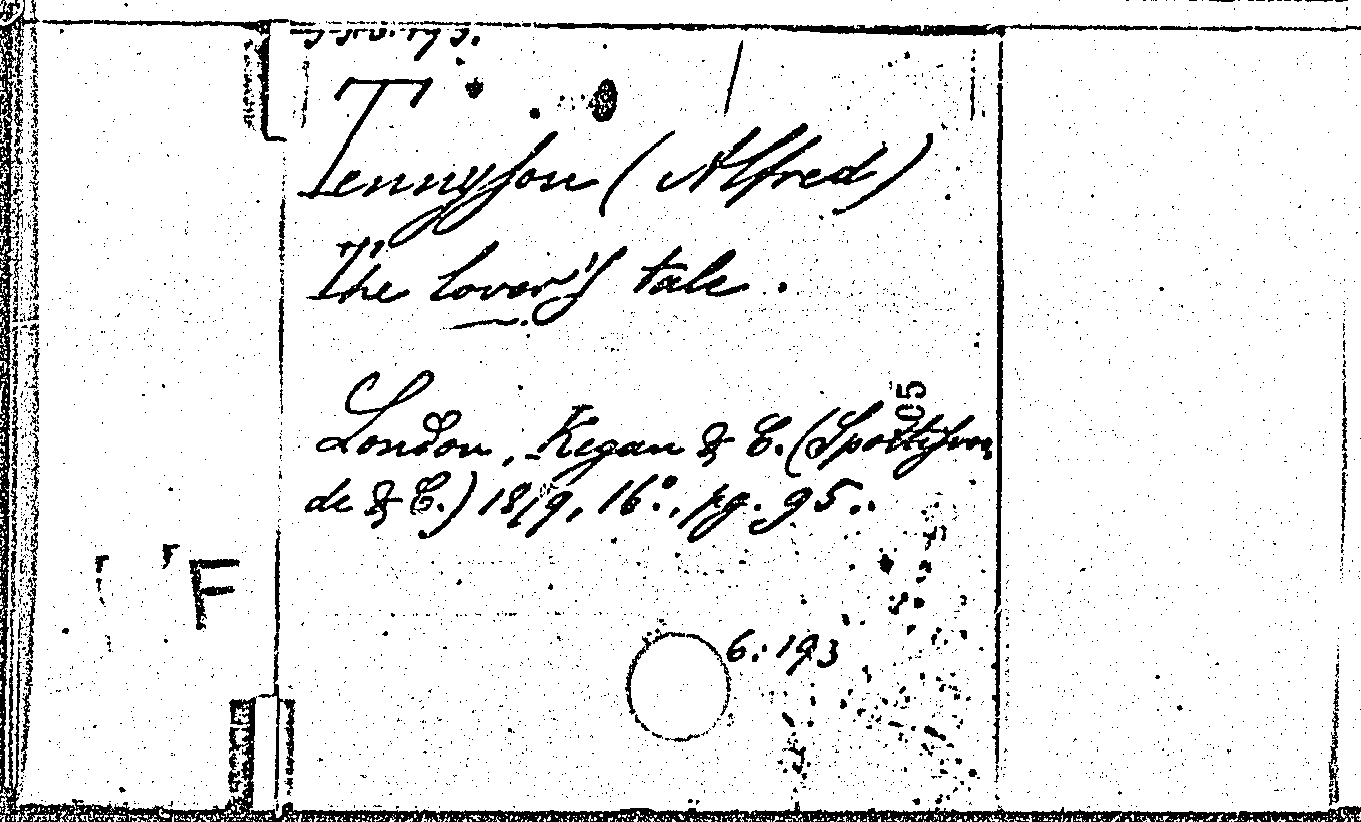 Tennyson (Alfred)
The lover's tale.
London, Kegan & C. (Spottiswoo
de & C.) 1879, 16°., pg. 95..
05
F
6.193